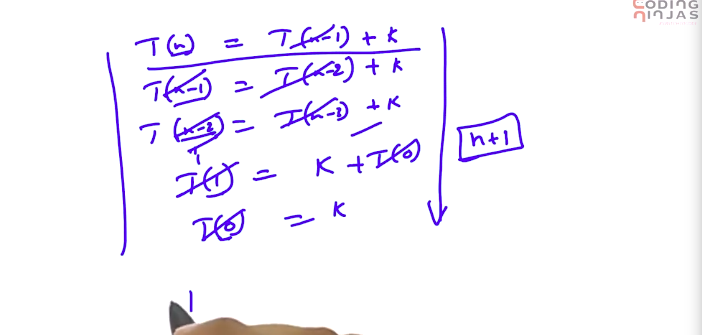 CODING
NINJAS
T(n) = T(n-1) + K
T(n-1) = T(n-2) + K
T(n-2) = T(n-3) + K
T(1) = K + T(0)
T(0) = K
n+1